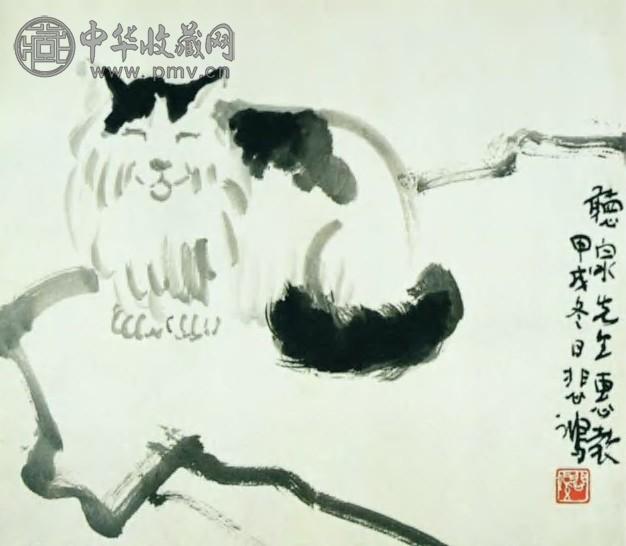 中华收藏网
www.pmv.cn
聽泉先生惠教
甲戌冬日悲鴻